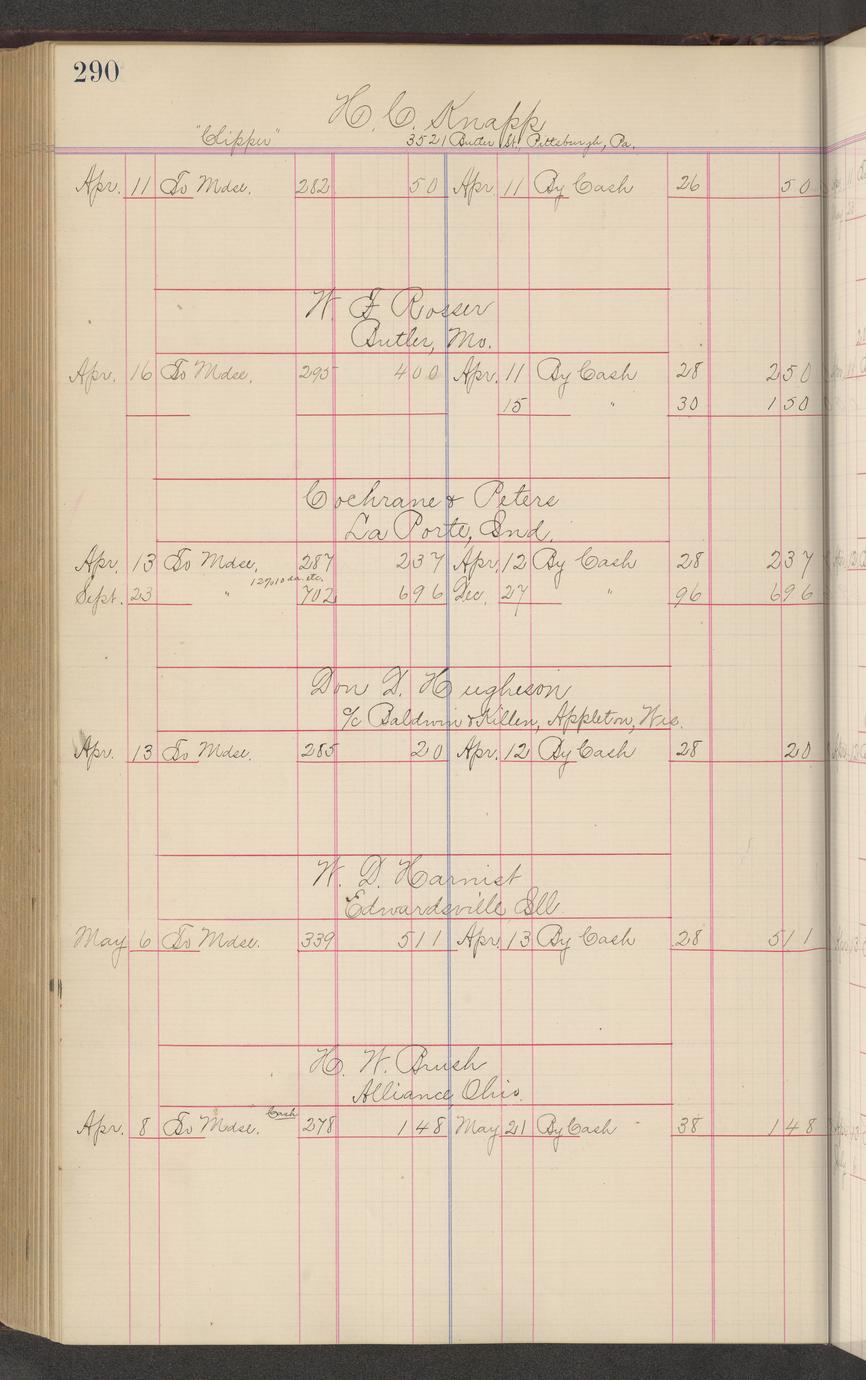 290
H. C. Knapp
"Clipper" 3521 Butler St, Pittsburgh, Pa.
Apr. 11 To Mdse. 282 50 Apr. 11 By Cash 26 50
W. F. Rosser
Butler, Mo.
Apr. 16 To Mdse. 295 400 Apr. 11 By Cash 28 250
15 " 30 150
Cochrane & Peters
La Porte, Ind.
Apr. 13 To Mdse. 287 237 Apr. 12 By Cash 28 237
Sept. 23 " 702 696 Dec. 27 " 96 696
Don D. Hugheson
c/o Baldwin & Killen, Appleton, Wis.
Apr. 13 To Mdse. 285 20 Apr. 12 By Cash 28 20
W. D. Harnist
Edwardsville Ill.
May 6 To Mdse. 339 511 Apr. 13 By Cash 28 511
H. W. Brush
Alliance Ohio.
Apr. 8 To Mdse. Cash 278 148 May 21 By Cash 38 148